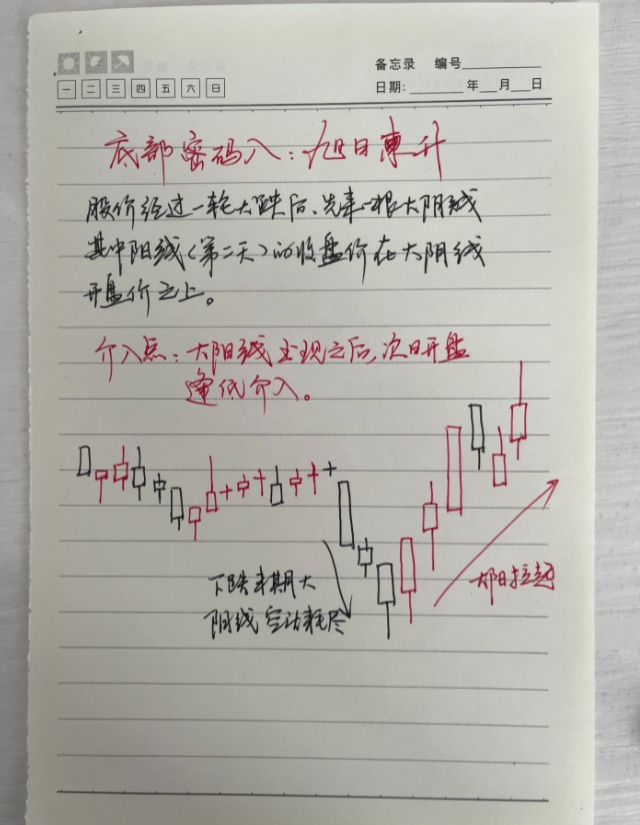 备忘录 编号
一 二 三 四 五 六 日
日期: 年 月 日
底部密码八：旭日東升
股价经过一轮大跌后、先来一根大阴线
其中阳线(第二天)的收盘价在大阴线
开盘价之上。
介入点：大阳线出现之后,次日开盘
逢低介入。
下跌末期大
阴线空方耗尽
大阳拉起